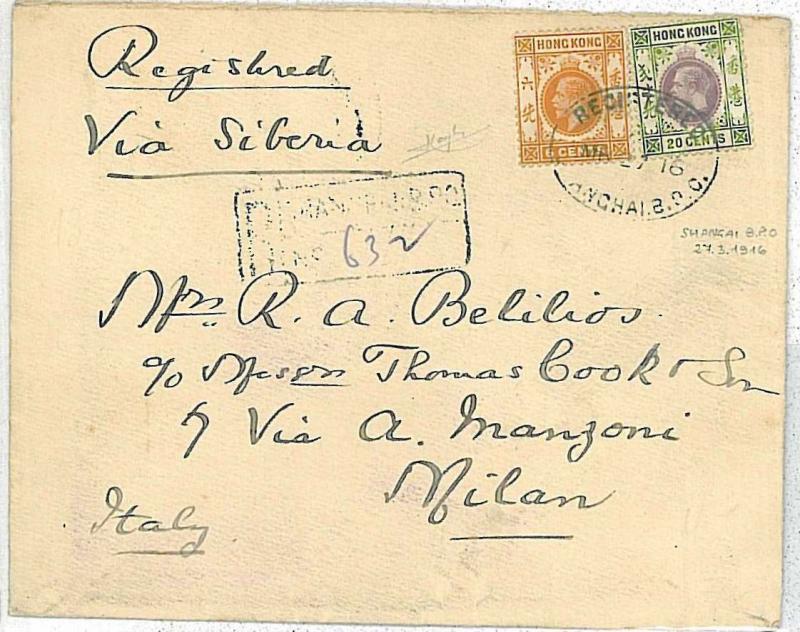 Registred
Via Siberia
HONG KONG
香港
六先
CENTS
HONG KONG
香港
20 CENTS
REGISTERED
MR 27 16
SHANGHAI.B.P.O.
SHANGHAI.B.P.O.
No 632
SHANGAI B.P.O
27.3.1916
Mrs R. A. Belilios.
c/o Messrs Thomas Cook & Son
7 Via A. Manzoni
Milan
Italy